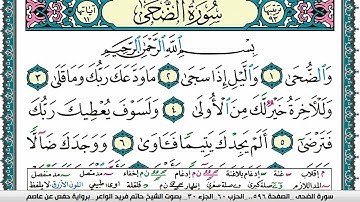 سُورَةُ الضُّحَىٰ
بِسْمِ اللَّهِ الرَّحْمَٰنِ الرَّحِيمِ
وَالضُّحَىٰ ١ وَالَّيْلِ إِذَا سَجَىٰ ٢ مَا وَدَّعَكَ رَبُّكَ وَمَا قَلَىٰ ٣
وَلَلْآخِرَةُ خَيْرٌ لَّكَ مِنَ الْأُولَىٰ ٤ وَلَسَوْفَ يُعْطِيكَ رَبُّكَ
فَتَرْضَىٰ ٥ أَلَمْ يَجِدْكَ يَتِيمًا فَـَٔاوَىٰ ٦ وَوَجَدَكَ ضَالًّا
سورة الضحى .. الصفحة ٥٩٦ .. الحزب ٦٠ .. الجزء ٣٠ .. بصوت الشيخ حاتم فريد الواعر .. برواية حفص عن عاصم